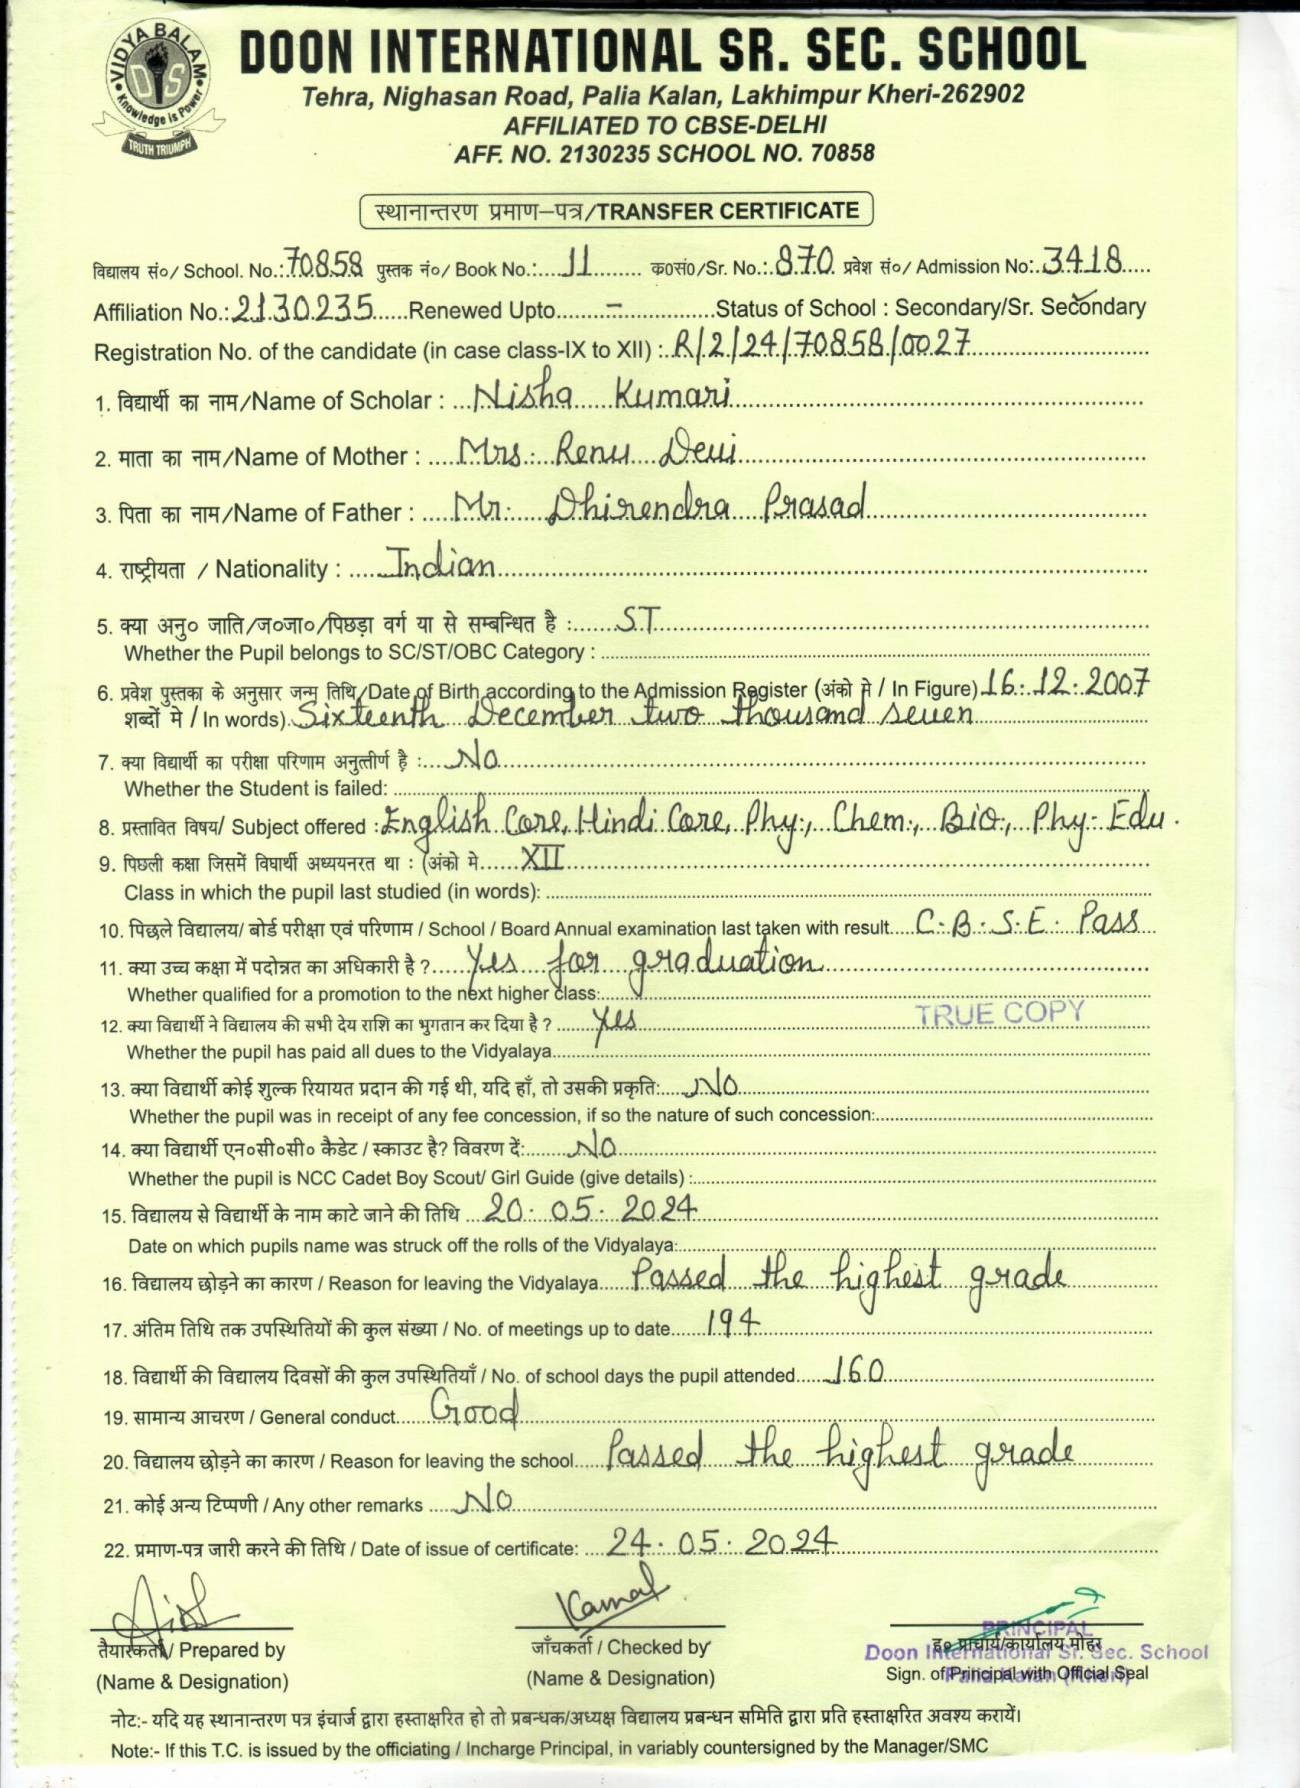 VIDYA BALAM
DIS
Knowledge is Power
TRUTH TRIUMPH
DOON INTERNATIONAL SR. SEC. SCHOOL
Tehra, Nighasan Road, Palia Kalan, Lakhimpur Kheri-262902
AFFILIATED TO CBSE-DELHI
AFF. NO. 2130235 SCHOOL NO. 70858
स्थानान्तरण प्रमाण–पत्र/TRANSFER CERTIFICATE
विद्यालय सं०/ School. No.: 70858 पुस्तक नं०/ Book No.: 11 क०सं०/Sr. No.: 870 प्रवेश सं०/ Admission No: 3418
Affiliation No.: 2130235 Renewed Upto - Status of School : Secondary/Sr. Secondary
Registration No. of the candidate (in case class-IX to XII) : R/2/24/70858/0027
1. विद्यार्थी का नाम/Name of Scholar : Nisha Kumari
2. माता का नाम/Name of Mother : Mrs. Renu Devi
3. पिता का नाम/Name of Father : Mr. Dhirendra Prasad
4. राष्ट्रीयता / Nationality : Indian
5. क्या अनु० जाति/ज०जा०/पिछड़ा वर्ग या से सम्बन्धित है : ST
Whether the Pupil belongs to SC/ST/OBC Category :
6. प्रवेश पुस्तका के अनुसार जन्म तिथि/Date of Birth according to the Admission Register (अंको मे / In Figure) 16.12.2007
शब्दों मे / In words) Sixteenth December two thousand seven
7. क्या विद्यार्थी का परीक्षा परिणाम अनुत्तीर्ण है : No
Whether the Student is failed:
8. प्रस्तावित विषय/ Subject offered : English Core, Hindi Core, Phy., Chem., Bio., Phy. Edu.
9. पिछली कक्षा जिसमें विघार्थी अध्ययनरत था : (अंको मे XII
Class in which the pupil last studied (in words):
10. पिछले विद्यालय/ बोर्ड परीक्षा एवं परिणाम / School / Board Annual examination last taken with result C.B.S.E. Pass
11. क्या उच्च कक्षा में पदोन्नत का अधिकारी है ? Yes for graduation
Whether qualified for a promotion to the next higher class:
12. क्या विद्यार्थी ने विद्यालय की सभी देय राशि का भुगतान कर दिया है ? Yes
TRUE COPY
Whether the pupil has paid all dues to the Vidyalaya
13. क्या विद्यार्थी कोई शुल्क रियायत प्रदान की गई थी, यदि हाँ, तो उसकी प्रकृति: No
Whether the pupil was in receipt of any fee concession, if so the nature of such concession:
14. क्या विद्यार्थी एन०सी०सी० कैडेट / स्काउट है? विवरण दें: No
Whether the pupil is NCC Cadet Boy Scout/ Girl Guide (give details) :
15. विद्यालय से विद्यार्थी के नाम काटे जाने की तिथि 20.05.2024
Date on which pupils name was struck off the rolls of the Vidyalaya:
16. विद्यालय छोड़ने का कारण / Reason for leaving the Vidyalaya Passed the highest grade
17. अंतिम तिथि तक उपस्थितियों की कुल संख्या / No. of meetings up to date 194
18. विद्यार्थी की विद्यालय दिवसों की कुल उपस्थितियाँ / No. of school days the pupil attended 160
19. सामान्य आचरण / General conduct Good
20. विद्यालय छोड़ने का कारण / Reason for leaving the school Passed the highest grade
21. कोई अन्य टिप्पणी / Any other remarks No
22. प्रमाण-पत्र जारी करने की तिथि / Date of issue of certificate: 24.05.2024
Kamal
PRINCIPAL
तैयारकर्ता / Prepared by जाँचकर्ता / Checked by ह० प्राचार्य/कार्यालय मोहर
Doon International Sr. Sec. School
(Name & Designation) (Name & Designation) Sign. of Principal with Official Seal
Palia Kalan (Kheri)
नोट:- यदि यह स्थानान्तरण पत्र इंचार्ज द्वारा हस्ताक्षरित हो तो प्रबन्धक/अध्यक्ष विद्यालय प्रबन्धन समिति द्वारा प्रति हस्ताक्षरित अवश्य करायें।
Note:- If this T.C. is issued by the officiating / Incharge Principal, in variably countersigned by the Manager/SMC